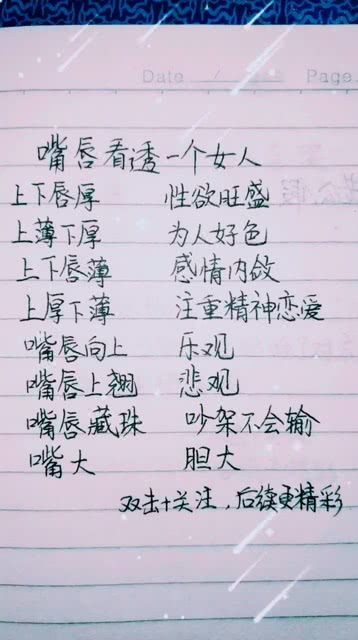 Date / Page.
嘴唇看透一个女人
上下唇厚 性欲旺盛
上薄下厚 为人好色
上下唇薄 感情内敛
上厚下薄 注重精神恋爱
嘴唇向上 乐观
嘴唇上翘 悲观
嘴唇藏珠 吵架不会输
嘴大 胆大
双击+关注，后续更精彩